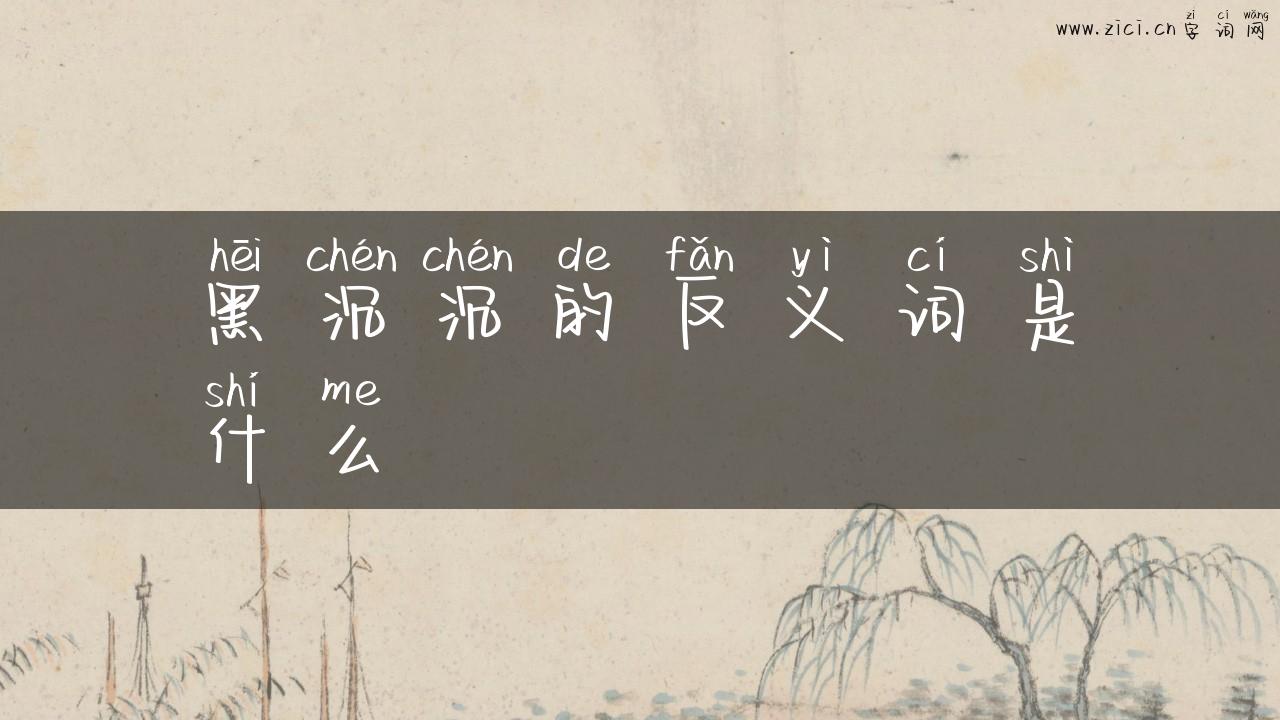 zì cí wǎng
www.zici.cn 字词网
hēi chén chén de fǎn yì cí shì
黑沉沉的反义词是
shí me
什么